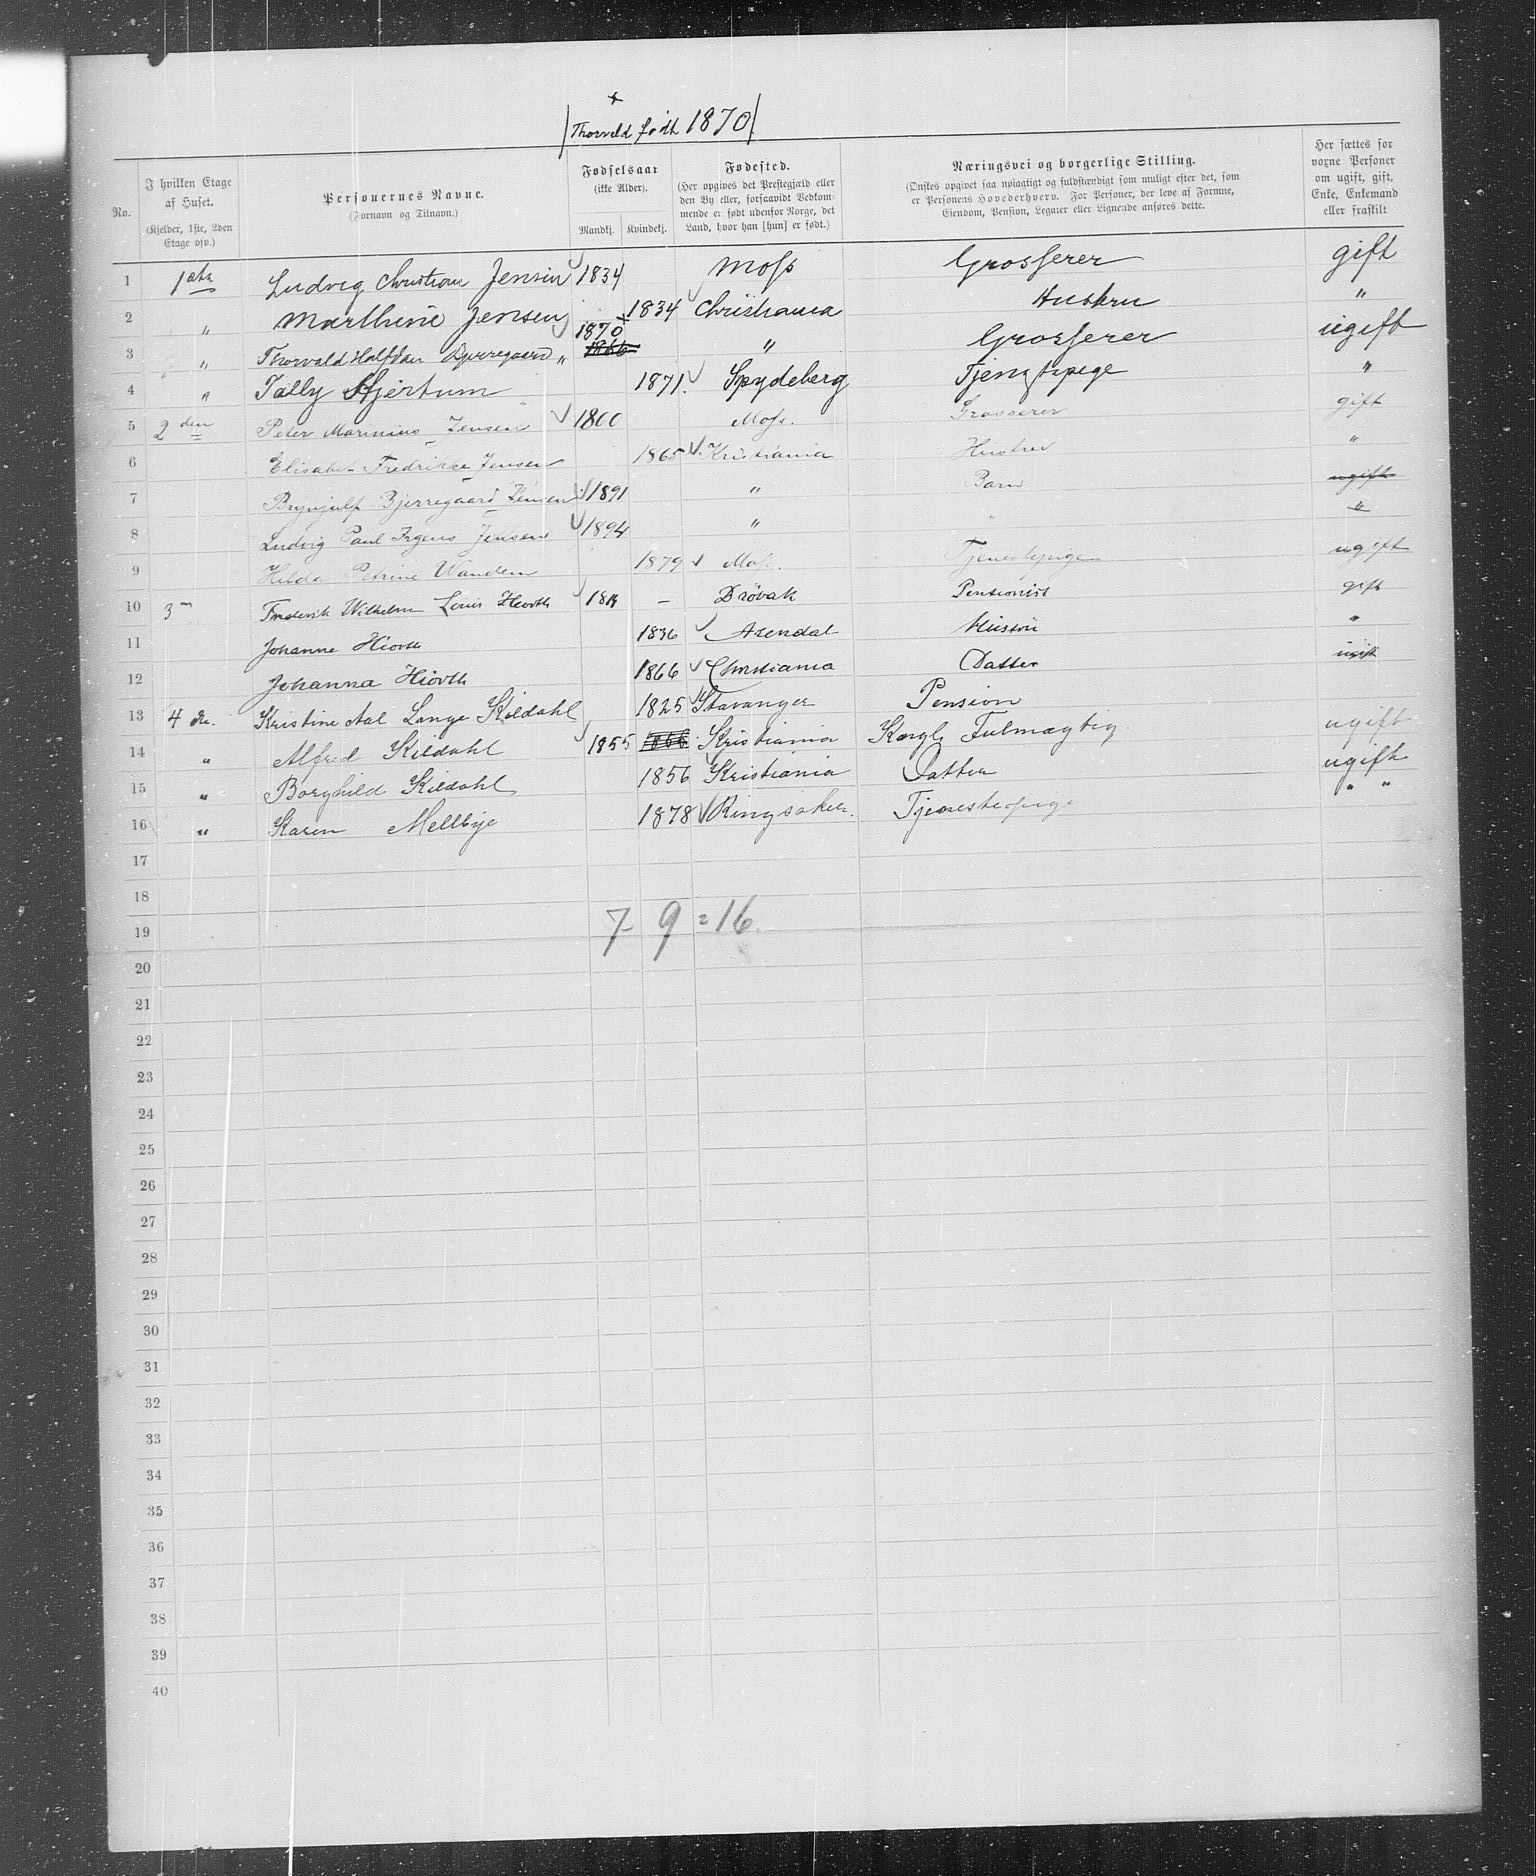 Thorvald født 1870
No.
I hvilken Etage af Huset.
(Kjelder, 1ste, 2den Etage osv.)
Personernes Navne.
(Fornavn og Tilnavn.)
Fødselsaar
(ikke Alder).
Mandkj. Kvindekj.
Fødested.
(Her opgives det Prestegjæld eller
den By eller, forsaavidt Vedkom-
mende er født udenfor Norge, det
Land, hvor han [hun] er født.)
Næringsvei og borgerlige Stilling.
(Ønskes opgivet saa nøiagtigt og fuldstændigt som muligt efter det, som
er Personens Hovederhverv. For Personer, der leve af Formue,
Eiendom, Pension, Legater eller Lignende anføres dette.
Her sættes for
voxne Personer
om ugift, gift,
Enke, Enkemand
eller fraskilt
1 1ste Ludvig Christian Jensen 1834 Moss Grosserer gift
2 " Marthine Jensen 1834 Christiania Hustru "
3 " Thorvald Halfdan Bjerregaard " 1870 1866 " Grosserer ugift
4 " Tally Hjertum 1871. Spydeberg Tjenstpige "
5 2den Peter Marinius Jensen 1860 Moss. Grosserer gift
6 Elisabet Fredrikke Jensen 1865 Kristiania Hustru "
7 Brynjulf Bjerregaard Jensen 1891 " Barn ugift
8 Ludvig Paul Irgens Jensen 1894 " " "
9 Hilda Petrine Wandem 1879 Moss. Tjenestepige ugift
10 3 Frederik Wilhelm Louis Hiorth 18 – Drøbak Pensionist gift
11 Johanne Hiorth 1836 Arendal Hustru "
12 Johanna Hiorth 1866 Christiania Datter ugift
13 4de. Kristine Aal Lange Kildahl 1825 Stavanger Pension
14 " Alfred Kildahl 1855 Kristiania Kongl. Fulmægtig ugift
15 " Borghild Kildahl 1856 Kristiania Datter ugift
16 " Karen Mellbye 1878 Ringsaker. Tjenestepige " "
17
18
7 9 = 16.
19
20
21
22
23
24
25
26
27
28
29
30
31
32
33
34
35
36
37
38
39
40